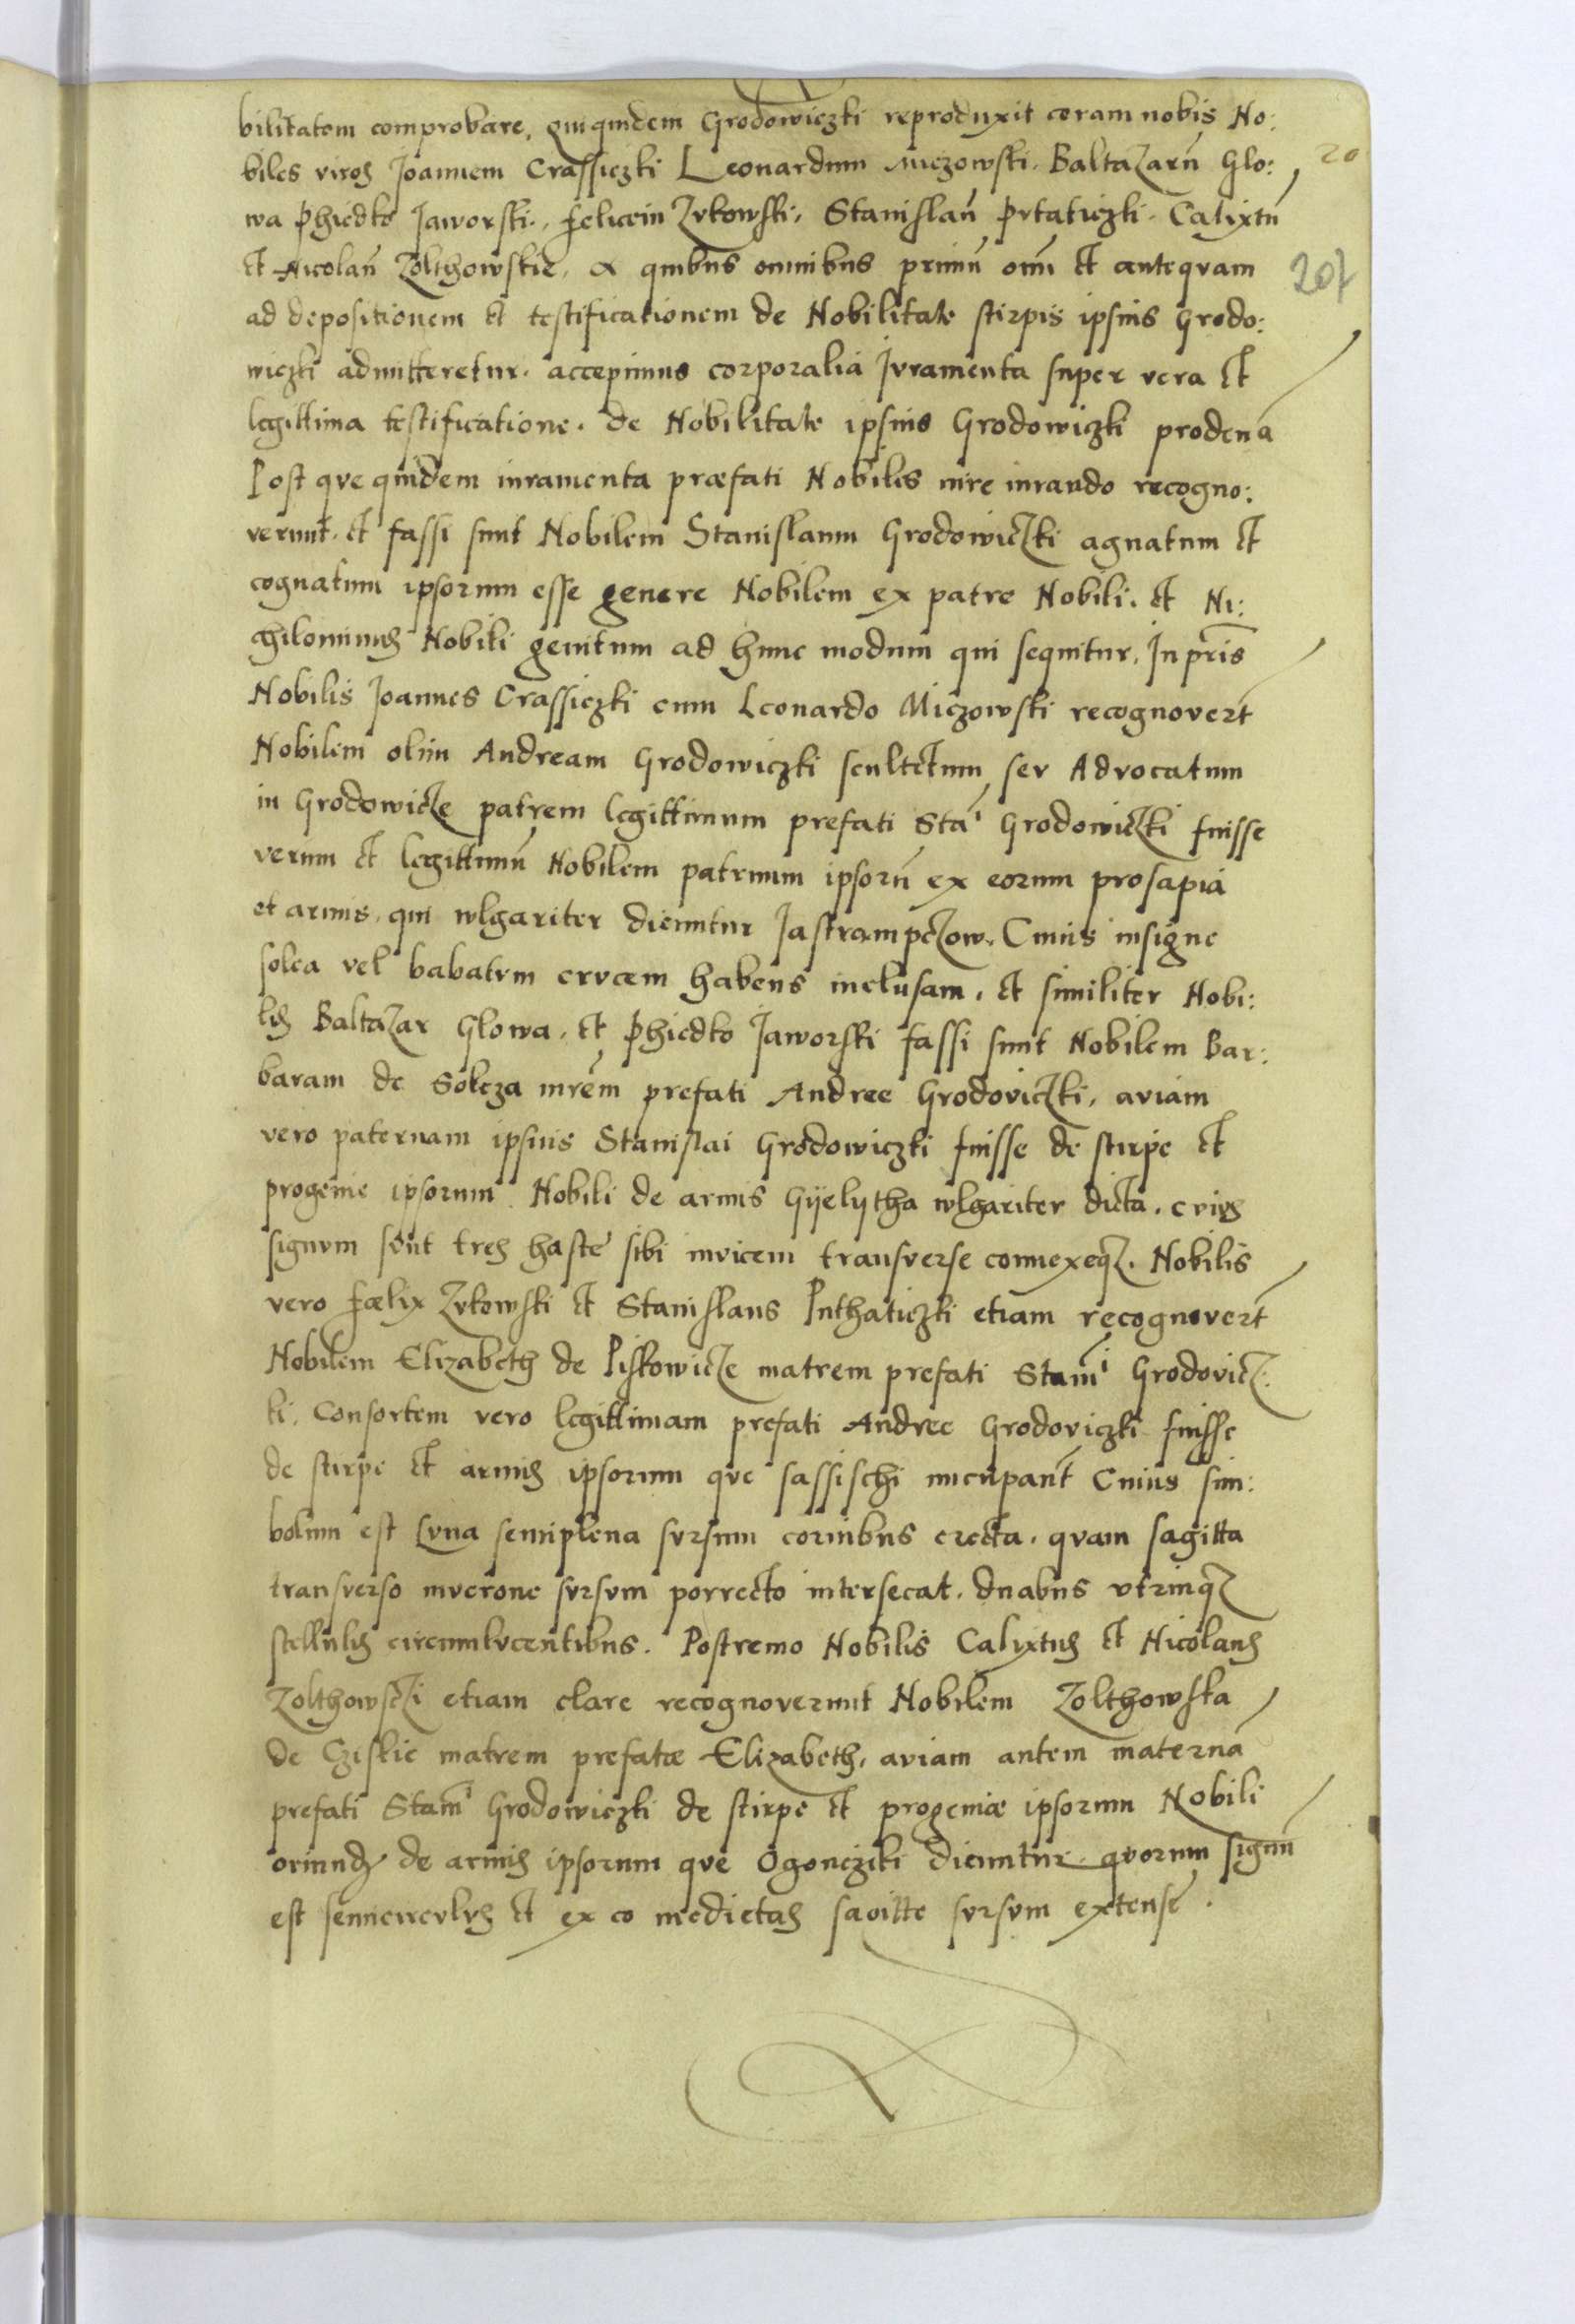 bilitatem comprobare, qui quidem Grodowiczki reproduxit coram nobis No:
biles viros Joannem Crassiczki Leonardum Miczowski. Baltazarū Glo:
20
wa Phiedko Jaworski. felicem Zukowski, Stanislaū Putaticzki. Calixtū
et Nicolaū Zolthowskie, a quibus omnibus primū om̄ et antequam
207
ad depositionem et testificationem de Nobilitate stirpis ipsius Grodo:
wiczki admitteretur. accepimus corporalia Juramenta super vera et
legittima testificatione. de Nobilitate ipsius Grodowiczki prodenā
Post que quidem iuramenta præfati Nobiles iure iurando recogno:
verunt. et fassi sunt Nobilem Stanislaum Grodowiczki agnatum et
cognatum ipsorum esse genere Nobilem ex patre Nobili. et Ni:
chilominus Nobili genitum ad hunc modum qui sequitur, In pris̄
Nobilis Joannes Crassiczki cum Leonardo Miczowski recognover̄t
Nobilem olim Andream Grodowiczki scultetum seu Advocatum
in Grodowicze patrem legittimum prefati Staī Grodowiczki fuisse
verum et legittimū Nobilem patruum ipsorū ex eorum prosapia
et armis, qui wlgariter dicuntur Jastrampczow. Cuius insigne
solea vel babatum crucem habens inclusam, et similiter Nobi:
lis Baltazar Glowa, et Phiedko Jaworski fassi sunt Nobilem Bar:
baram de Solcza mrēm prefati Andree Grodoviczki, aviam
vero paternam ipsius Stanislai Grodowiczki fuisse de stirpe et
progenie ipsorum Nobili de armis Gÿelytha wlgariter dicta. cuius
signum sunt tres haste sibi invicem transverse connexeq. Nobilis
vero fælix Zukowski et Stanislaus Puthaticzki etiam recognover̄t
Nobilem Elizabeth de Piskowicze matrem prefati Stanī Grodovicz:
ki. Consortem vero legittimam prefati Andree Grodoviczki fuisse
de stirpe et armis ipsorum que sassischi nuncupanȶ Cuius sim:
bolum est Luna semiplena sursum cornibus erecta. quam sagitta
transverso mucrone sursum porrecto intersecat. duabus utrinq
stellulis circumlucentibus. Postremo Nobilis Calyxtus et Nicolaus
Zolthowsczi etiam clare recognoverunt Nobilem Zolthowska
de Cziskie matrem prefatæ Elizabeth, aviam autem maternā
prefati Stanī Grodowiczki de stirpe et progeniæ ipsorum Nobili
oriund de armis ipsorum que Ogoncziki dicuntur quorum signū
est semicirculus et ex eo medietas sagitte sursum extense.